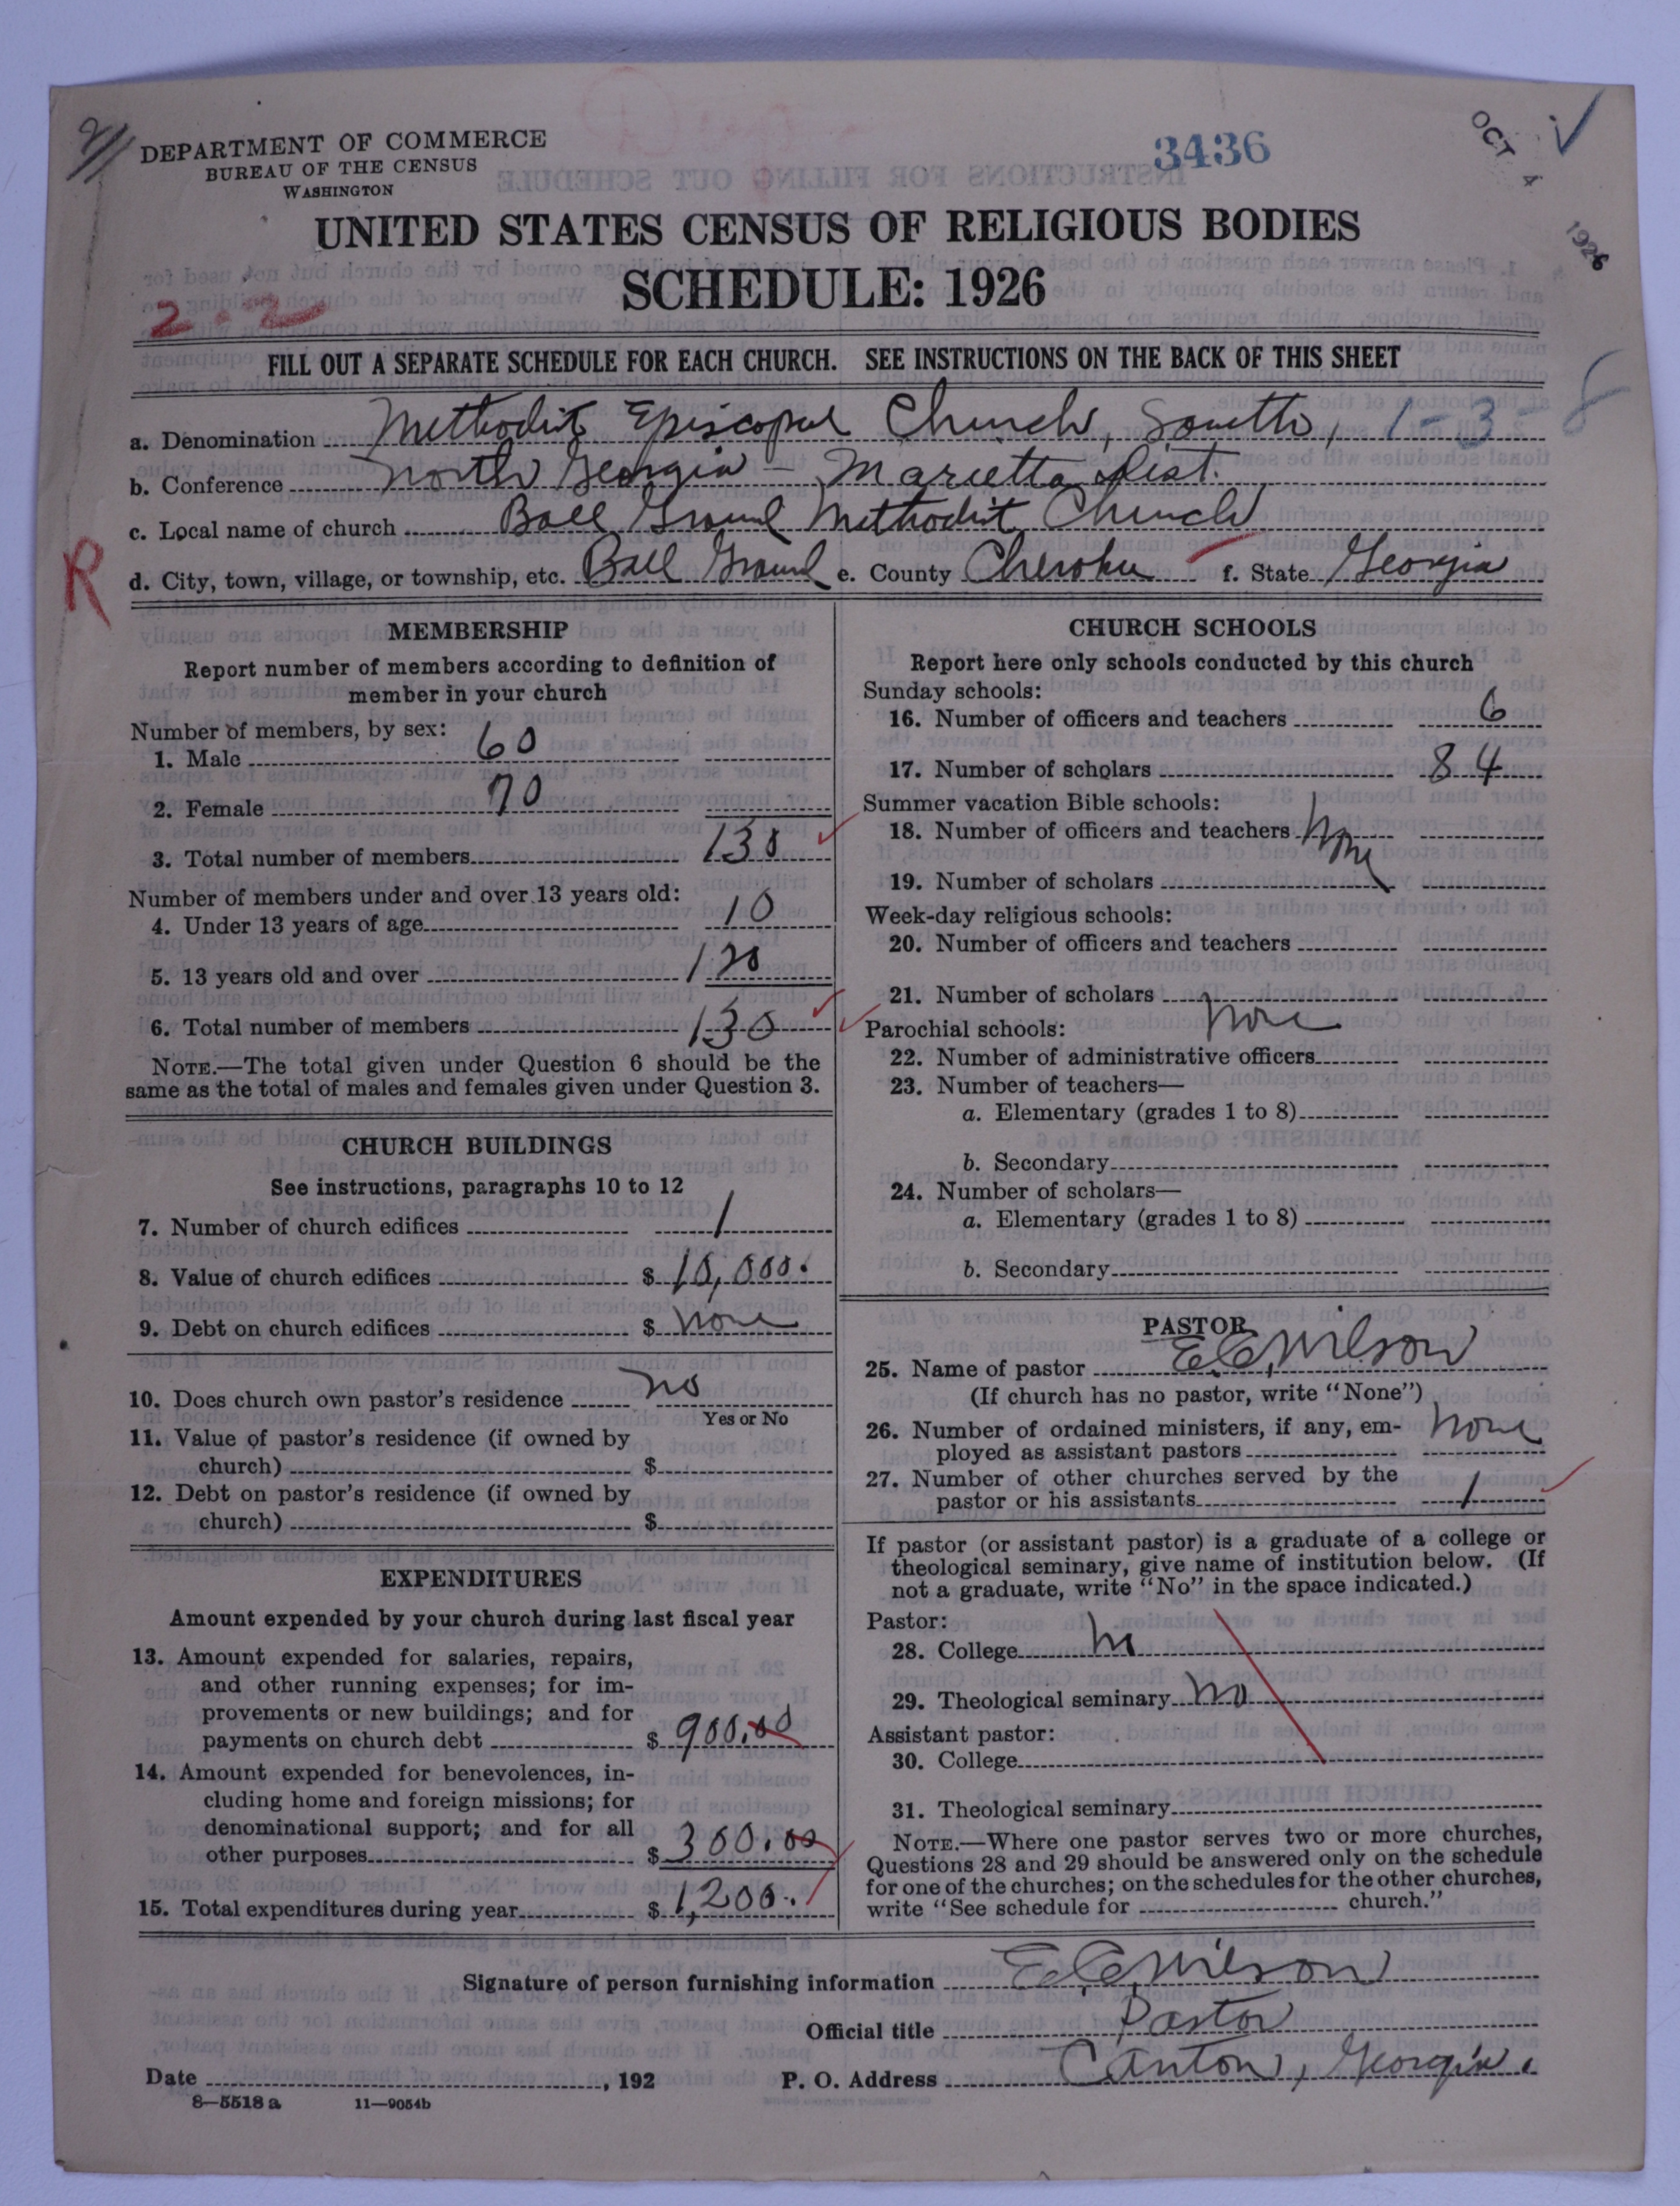 DEPARTMENT OF COMMERCE
BUREAU OF THE CENSUS
WASHINGTON
3436
OCT 4 1926
UNITED STATES CENSUS OF RELIGIOUS BODIES
SCHEDULE: 1926
2-2
FILL OUT A SEPARATE SCHEDULE FOR EACH CHURCH. SEE INSTRUCTIONS ON THE BACK OF THIS SHEET
a. Denomination Methodist Episcopal Church, South, 1-3-8
b. Conference North Georgia - Marietta Dist.
c. Local name of church Ball Ground Methodist Church
R
d. City, town, village, or township, etc. Ball Ground e. County Cherokee f. State Georgia
MEMBERSHIP
Report number of members according to definition of
member in your church
Number of members, by sex:
1. Male 60
2. Female 70
3. Total number of members 130
Number of members under and over 13 years old:
4. Under 13 years of age 10
5. 13 years old and over 120
6. Total number of members 130
NOTE.—The total given under Question 6 should be the
same as the total of males and females given under Question 3.
CHURCH BUILDINGS
See instructions, paragraphs 10 to 12
7. Number of church edifices 1
8. Value of church edifices $ 10,000.
9. Debt on church edifices $ none
10. Does church own pastor's residence no
Yes or No
11. Value of pastor's residence (if owned by
church) $
12. Debt on pastor's residence (if owned by
church) $
EXPENDITURES
Amount expended by your church during last fiscal year
13. Amount expended for salaries, repairs,
and other running expenses; for im-
provements or new buildings; and for
payments on church debt $ 900.00
14. Amount expended for benevolences, in-
cluding home and foreign missions; for
denominational support; and for all
other purposes $ 300.00
15. Total expenditures during year $ 1,200.
CHURCH SCHOOLS
Report here only schools conducted by this church
Sunday schools:
16. Number of officers and teachers 6
17. Number of scholars 84
Summer vacation Bible schools:
18. Number of officers and teachers None
19. Number of scholars
Week-day religious schools:
20. Number of officers and teachers
21. Number of scholars
Parochial schools: none
22. Number of administrative officers
23. Number of teachers—
a. Elementary (grades 1 to 8)
b. Secondary
24. Number of scholars—
a. Elementary (grades 1 to 8)
b. Secondary
PASTOR
25. Name of pastor E. C. Wilson
(If church has no pastor, write "None")
26. Number of ordained ministers, if any, em-
ployed as assistant pastors none
27. Number of other churches served by the
pastor or his assistants 1
If pastor (or assistant pastor) is a graduate of a college or
theological seminary, give name of institution below. (If
not a graduate, write "No" in the space indicated.)
Pastor:
28. College no
29. Theological seminary no
Assistant pastor:
30. College
31. Theological seminary
NOTE.—Where one pastor serves two or more churches,
Questions 28 and 29 should be answered only on the schedule
for one of the churches; on the schedules for the other churches,
write "See schedule for church."
Signature of person furnishing information E. C. Wilson
Official title Pastor
Date , 192 P. O. Address Canton, Georgia.
8—5518 a 11—9054b